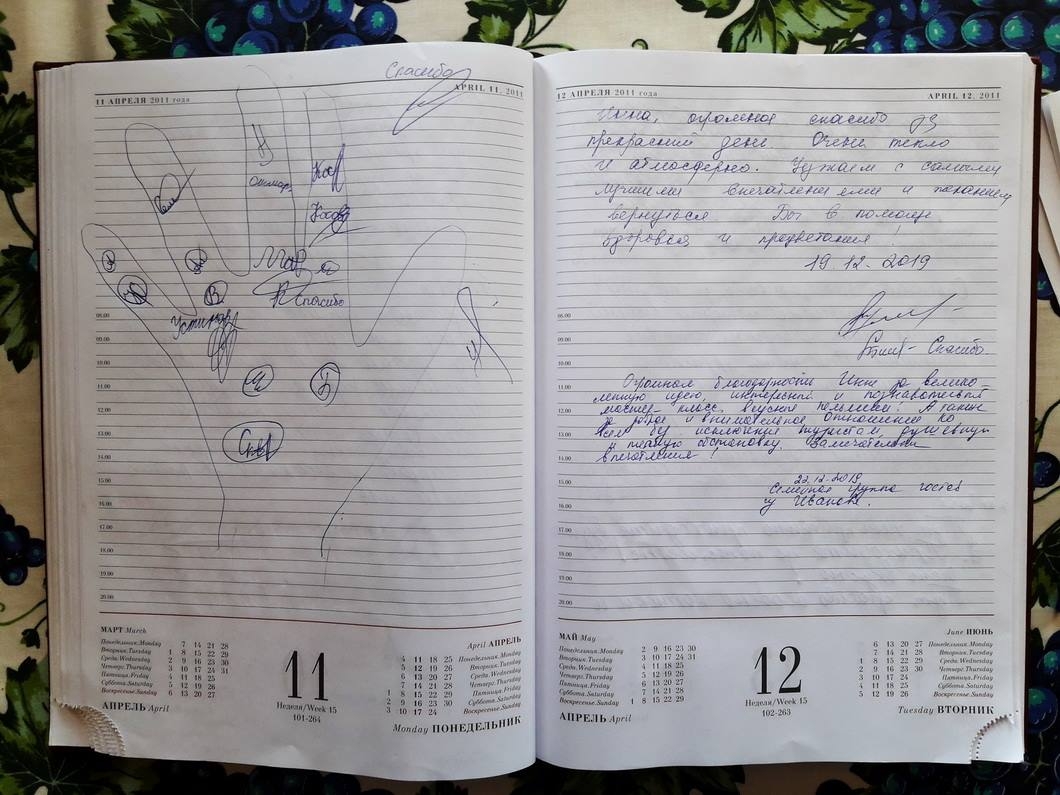 Спасибо
11 АПРЕЛЯ 2011 года
APRIL 11, 2011
Спасибо
08.00
09.00
10.00
11.00
12.00
13.00
14.00
15.00
16.00
17.00
18.00
19.00
20.00
МАРТ March
Понедельник.Monday 7 14 21 28
Вторник.Tuesday 1 8 15 22 29
Среда.Wednesday 2 9 16 23 30
Четверг.Thursday 3 10 17 24 31
Пятница.Friday 4 11 18 25
Суббота.Saturday 5 12 19 26
Воскресенье.Sunday 6 13 20 27
АПРЕЛЬ April
11
Неделя/Week 15
101-264
April АПРЕЛЬ
4 11 18 25 Понедельник.Monday
5 12 19 26 Вторник.Tuesday
6 13 20 27 Среда.Wednesday
7 14 21 28 Четверг.Thursday
1 8 15 22 29 Пятница.Friday
2 9 16 23 30 Суббота.Saturday
3 10 17 24 Воскресенье.Sunday
Monday ПОНЕДЕЛЬНИК
12 АПРЕЛЯ 2011 года
APRIL 12, 2011
Инна, огромное спасибо за
прекрасный день. Очень тепло
и атмосферно. Уезжаем с самыми
лучшими впечатлениями и желанием
вернуться Бог в помощь
здоровья и процветания!
19.12.2019
Спасибо
Огромная благодарность Инне за велико-
лепную идею, интересный и познавательный
мастер-класс, вкусные пельмени! А также
за доброе и внимательное отношение ко
всем без исключения туристам душевную
и теплую обстановку. Замечательные
впечатления!
22.12.2019
Семейная группа гостей
из Иванова.
08.00
09.00
10.00
11.00
12.00
13.00
14.00
15.00
16.00
17.00
18.00
19.00
20.00
МАЙ May
Понедельник.Monday 2 9 16 23 30
Вторник.Tuesday 3 10 17 24 31
Среда.Wednesday 4 11 18 25
Четверг.Thursday 5 12 19 26
Пятница.Friday 6 13 20 27
Суббота.Saturday 7 14 21 28
Воскресенье.Sunday 1 8 15 22 29
АПРЕЛЬ April
12
Неделя/Week 15
102-263
June ИЮНЬ
6 13 20 27 Понедельник.Monday
7 14 21 28 Вторник.Tuesday
1 8 15 22 29 Среда.Wednesday
2 9 16 23 30 Четверг.Thursday
3 10 17 24 Пятница.Friday
4 11 18 25 Суббота.Saturday
5 12 19 26 Воскресенье.Sunday
Tuesday ВТОРНИК